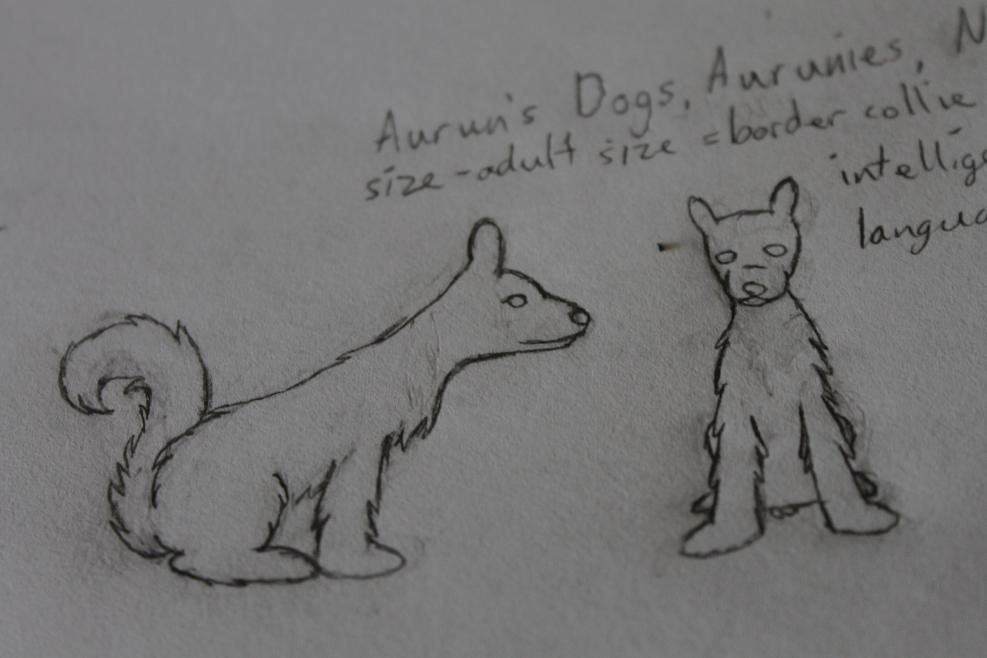 Aurun's Dogs, Aurunies, N
size - adult size = border collie
intellige
langua